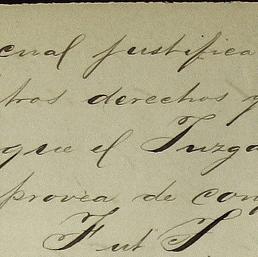 cual justifica
tros derechos y
que el Juzga
provea de con
Fut S